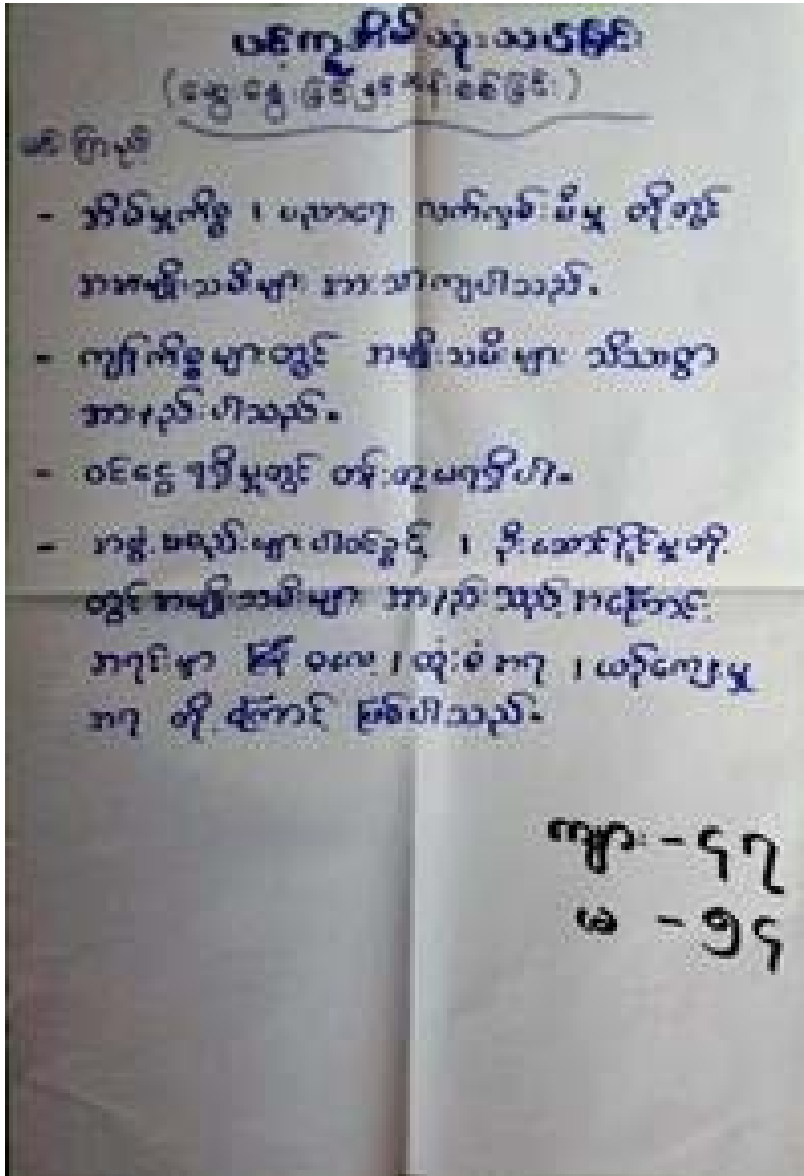 ပင့်ကူအိမ်သုံးသပ်ခြင်း
(ဆွေးနွေးခြင်းနှင့်ဆန်းစစ်ခြင်း)
မင်းကြာရပ်
- အိမ်မှုကိစ္စ ၊ ပညာရေး လက်လှမ်းမီမှု တို့တွင်
အမျိုးသမီးများ အားသာကျပါသည်။
- ကျေးကိစ္စများတွင် အမျိုးသမီးများ သိသာစွာ
အားနည်းပါသည်။
- ဝင်ငွေရရှိမှုတွင် တန်းတူမရရှိပါ။
- အဖွဲ့အစည်းများပါဝင်ခွင့် ၊ ဦးဆောင်နိုင်မှုတို့
တွင်အမျိုးသမီးများ အားနည်းသည့်အကြောင်း
အရင်းမှာ မြန်မာလေ့ ၊ ထုံးစံအရ ၊ ယဉ်ကျေးမှု
အရ တို့ကြောင့် ဖြစ်ပါသည်။
ကျား - ၄၇
မ - ၅၄